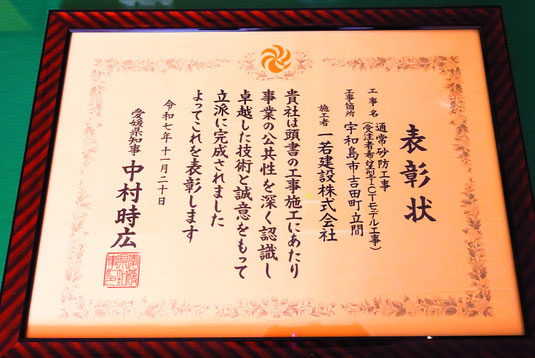 表彰状
工事名 通常砂防工事
(受注者希望型ICTモデル工事)
工事箇所 宇和島市吉田町立間
施工者 一若建設株式会社
貴社は頭書の工事施工にあたり
事業の公共性を深く認識し
卓越した技術と誠意をもって
立派に完成されました
よってこれを表彰します
令和七年十一月二十日
愛媛県知事 中村時広